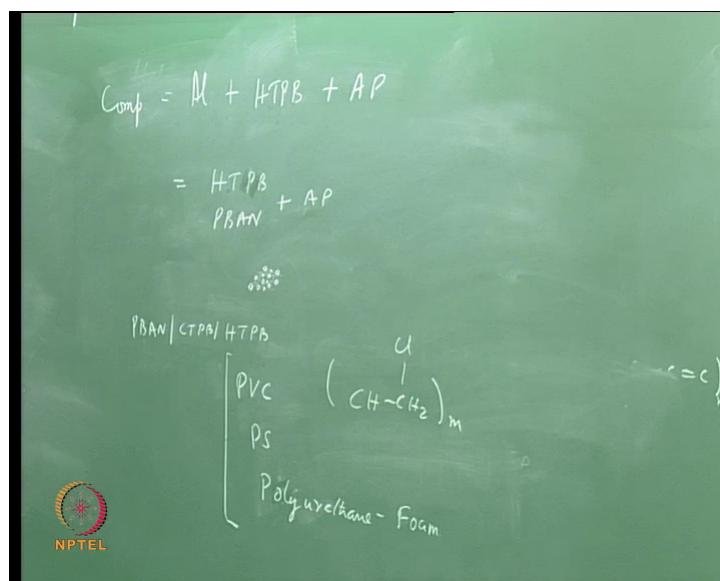 Comp = Al + HTPB + AP
= HTPB + AP
PBAN
PBAN/CTPB/HTPB
PVC
Cl
|
(CH-CH₂)m
PS
Polyurethane-Foam
=C)
NPTEL